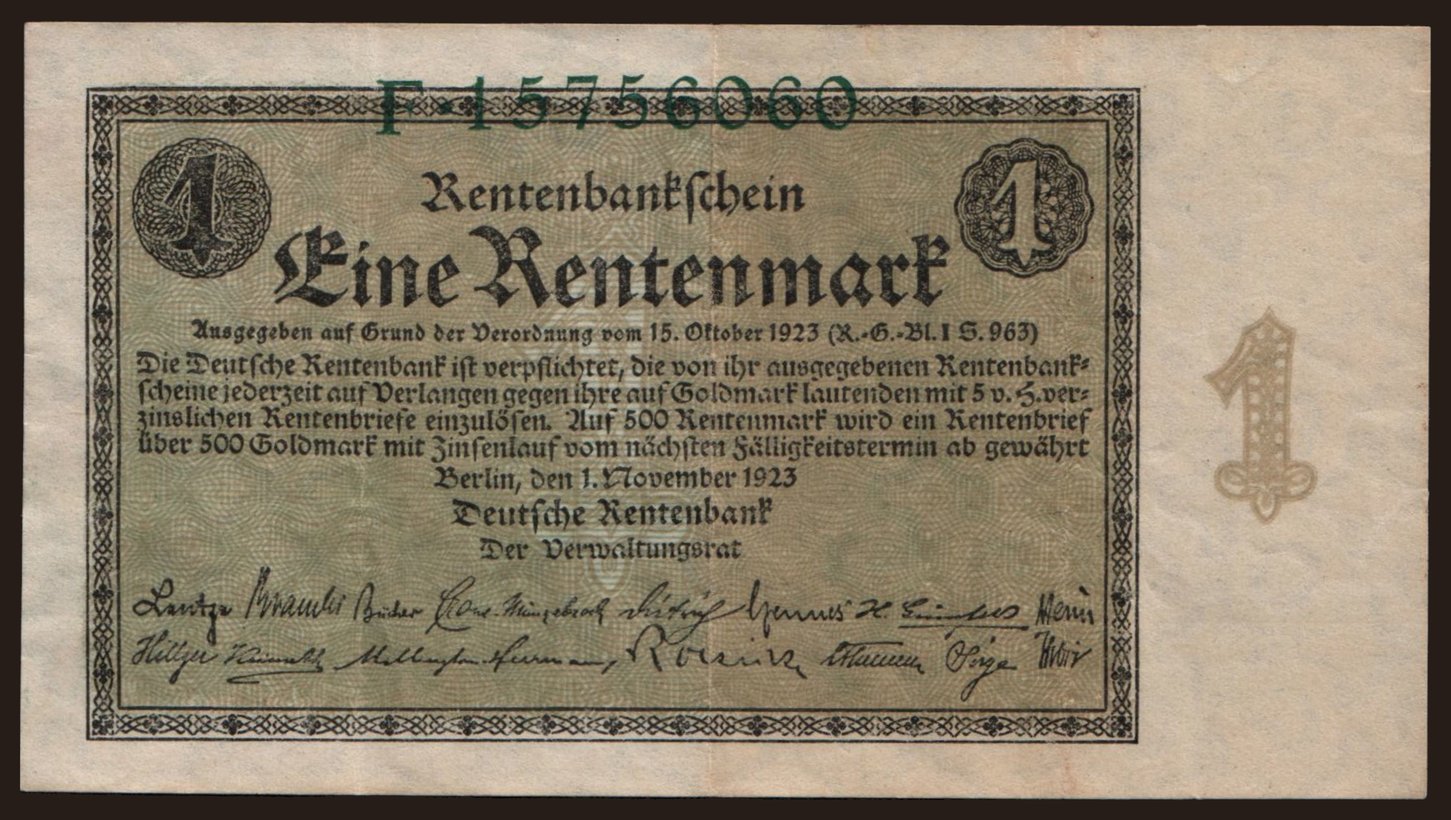 F·15756060
1 1
Rentenbankschein
Eine Rentenmark
Ausgegeben auf Grund der Verordnung vom 15. Oktober 1923 (R.-G.-Bl. I S. 963)
Die Deutsche Rentenbank ist verpflichtet, die von ihr ausgegebenen Rentenbank-
scheine jederzeit auf Verlangen gegen ihre auf Goldmark lautenden mit 5 v. H. ver-
zinslichen Rentenbriefe einzulösen. Auf 500 Rentenmark wird ein Rentenbrief
über 500 Goldmark mit Zinsenlauf vom nächsten Fälligkeitstermin ab gewährt
Berlin, den 1. November 1923
Deutsche Rentenbank
Der Verwaltungsrat
Lentze Brandes Bücher Crone-Münzebrock Dietrich
Hillger
1